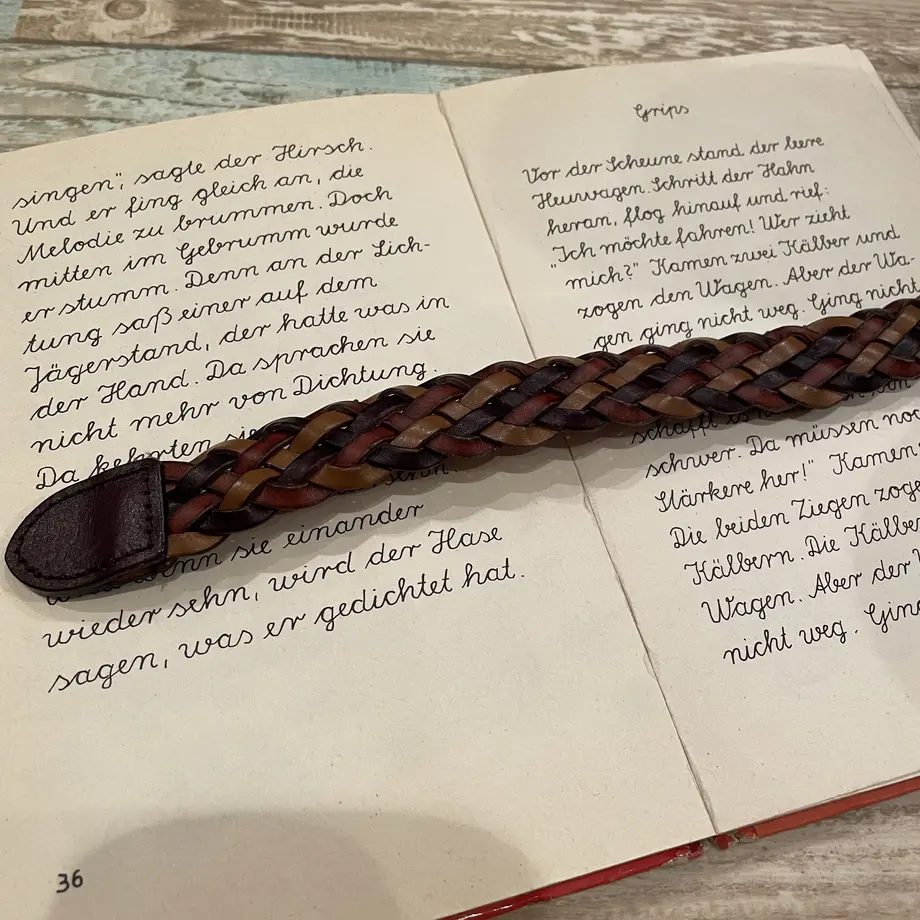 singen", sagte der Hirsch.
Und er fing gleich an, die
Melodie zu brummen. Doch
mitten im Gebrumm wurde
er stumm. Denn an der Lich-
tung saß einer auf dem
Jägerstand, der hatte was in
der Hand. Da sprachen sie
nicht mehr von Dichtung.
Da kehrten sie
wenn sie einander
wieder sehn, wird der Hase
sagen, was er gedichtet hat.
36
Grips
Vor der Scheune stand der leere
Heuwagen. Schritt der Hahn
heran, flog hinauf und rief:
"Ich möchte fahren! Wer zieht
mich?" Kamen zwei Kälber und
zogen den Wagen. Aber der Wa-
gen ging nicht weg. Ging nicht
schafft es
schwer. Da müssen noch
Stärkere her!" Kamen
Die beiden Ziegen
Kälbern. Die
Wagen. Aber der
nicht weg. Ging